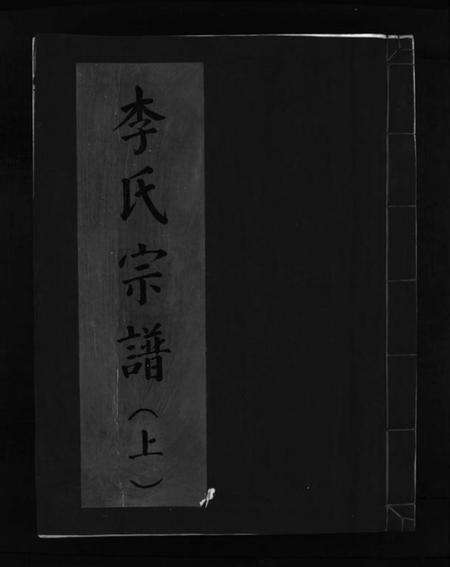 李氏宗譜（上）